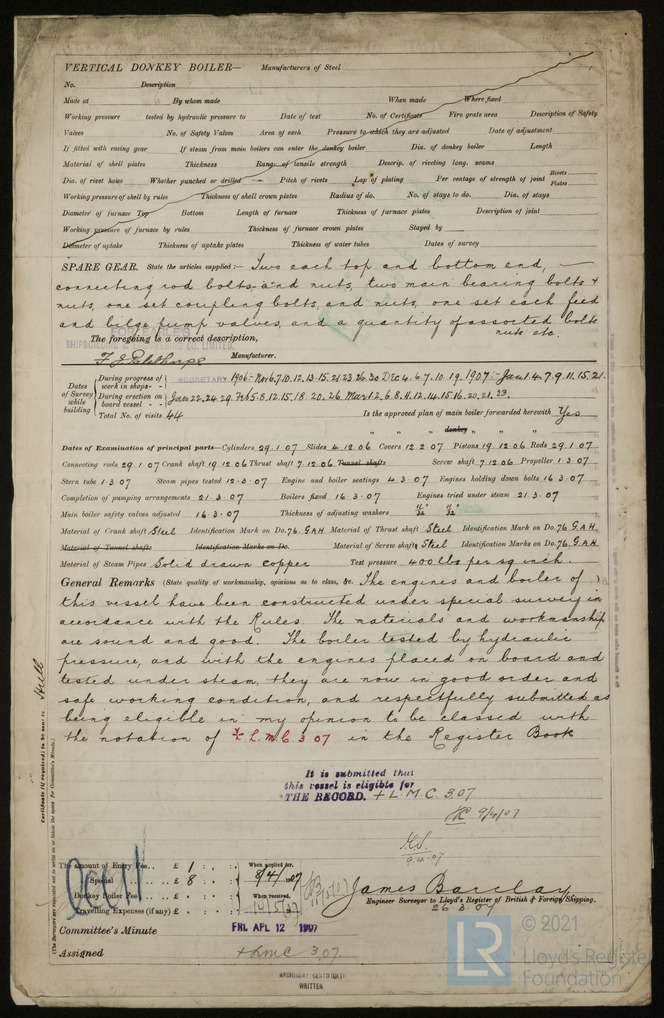 VERTICAL DONKEY BOILER— Manufacturers of Steel
No. Description
Made at By whom made When made Where fixed
Working pressure tested by hydraulic pressure to Date of test No. of Certificate Fire grate area Description of Safety
Valves No. of Safety Valves Area of each Pressure to which they are adjusted Date of adjustment
If fitted with easing gear If steam from main boilers can enter the donkey boiler Dia. of donkey boiler Length
Material of shell plates Thickness Range of tensile strength Descrip. of riveting long. seams
Dia. of rivet holes Whether punched or drilled Pitch of rivets Lap of plating Per centage of strength of joint Rivets Plates
Working pressure of shell by rules Thickness of shell crown plates Radius of do. No. of stays to do. Dia. of stays
Diameter of furnace Top Bottom Length of furnace Thickness of furnace plates Description of joint
Working pressure of furnace by rules Thickness of furnace crown plates Stayed by
Diameter of uptake Thickness of uptake plates Thickness of water tubes Dates of survey
SPARE GEAR. State the articles supplied:— Two each top and bottom end,
connecting rod bolts and nuts, two main bearing bolts +
nuts, one set coupling bolts, and nuts, one set each feed
and bilge pump valves, and a quantity of assorted bolts
nuts etc.
The foregoing is a correct description,
F. J. Palethorpe Manufacturer.
SECRETARY
Dates of Survey while building
During progress of work in shops - 1906 - Nov 6.7.10.12.13.15.21.23.26.30 Dec 4.6.7.10.19. 1907:- Jan 1.4.7.9.11.15.21.
During erection on board vessel - Jan 22.24.29. Feb 5.8.12.15.18.20.26 Mar 1.2.6.8.11.12.14.15.16.20.21.23.
Total No. of visits 44 Is the approved plan of main boiler forwarded herewith Yes
" " " donkey " " "
Dates of Examination of principal parts—Cylinders 29.1.07 Slides 4.12.06 Covers 12.2.07 Pistons 19.12.06 Rods 29.1.07
Connecting rods 29.1.07 Crank shaft 19.12.06 Thrust shaft 7.12.06 Tunnel shafts Screw shaft 7.12.06 Propeller 1.3.07
Stern tube 1.3.07 Steam pipes tested 12.3.07 Engine and boiler seatings 4.3.07 Engines holding down bolts 16.3.07
Completion of pumping arrangements 21.3.07 Boilers fixed 16.3.07 Engines tried under steam 21.3.07
Main boiler safety valves adjusted 16.3.07 Thickness of adjusting washers
Material of Crank shaft Steel Identification Mark on Do. 76. GAH Material of Thrust shaft Steel Identification Mark on Do. 76 GAH
Material of Tunnel shafts Identification Marks on Do. Material of Screw shafts Steel Identification Marks on Do. 76 GAH
Material of Steam Pipes Solid drawn copper Test pressure 400 lbs per sq inch.
General Remarks (State quality of workmanship, opinions as to class, &c. The engines and boiler of
this vessel have been constructed under special survey in
accordance with the Rules. The materials and workmanship
are sound and good. The boiler tested by hydraulic
pressure, and with the engines placed on board and
tested under steam, they are now in good order and
safe working condition, and respectfully submitted as
being eligible in my opinion to be classed with
the notation of + L.M.C. 3 07 in the Register Book
It is submitted that
this vessel is eligible for
THE RECORD. + L.M.C. 3.07
9/4/07
9.4.07
Certificate (if required) to be sent to Hull
The amount of Entry Fee .. £ 1 : : When applied for,
Special .. £ 8 : : 8/4/1907
Donkey Boiler Fee .. £ : : When received,
Travelling Expenses (if any) £ : :
James Barclay
Engineer Surveyor to Lloyd's Register of British & Foreign Shipping.
26.3.07
Committee's Minute FRI. APL 12 1907
Assigned + LMC 3.07
MACHINERY CERTIFICATE
WRITTEN
LR
© 2021
Lloyd's Register
Foundation